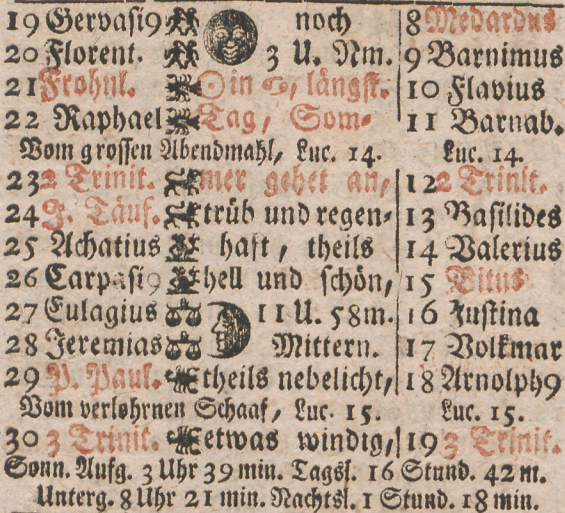 19 Gervasi9 noch 8 Medardus
20 Florent. 3 U. Nm. 9 Barnimus
21 Frohnl. ☉ in ♋, längst. 10 Flavius
22 Raphael Tag, Som- 11 Barnab.
Vom grossen Abendmahl, Luc. 14. Luc. 14.
23 2 Trinit. mer gehet an, 12 2 Trinit.
24 J. Täuf. trüb und regen- 13 Basilides
25 Achatius haft, theils 14 Valerius
26 Carpasi9 hell und schön, 15 Vitus
27 Eulagius 11 U. 58m. 16 Justina
28 Jeremias Mittern. 17 Volkmar
29 P. Paul. theils nebelicht, 18 Arnolph9
Vom verlohrnen Schaaf, Luc. 15. Luc. 15.
30 3 Trinit. etwas windig, 19 3 Trinit.
Sonn. Aufg. 3 Uhr 39 min. Tagsl. 16 Stund. 42 m.
Unterg. 8 Uhr 21 min. Nachtsl. 1 Stund. 18 min.